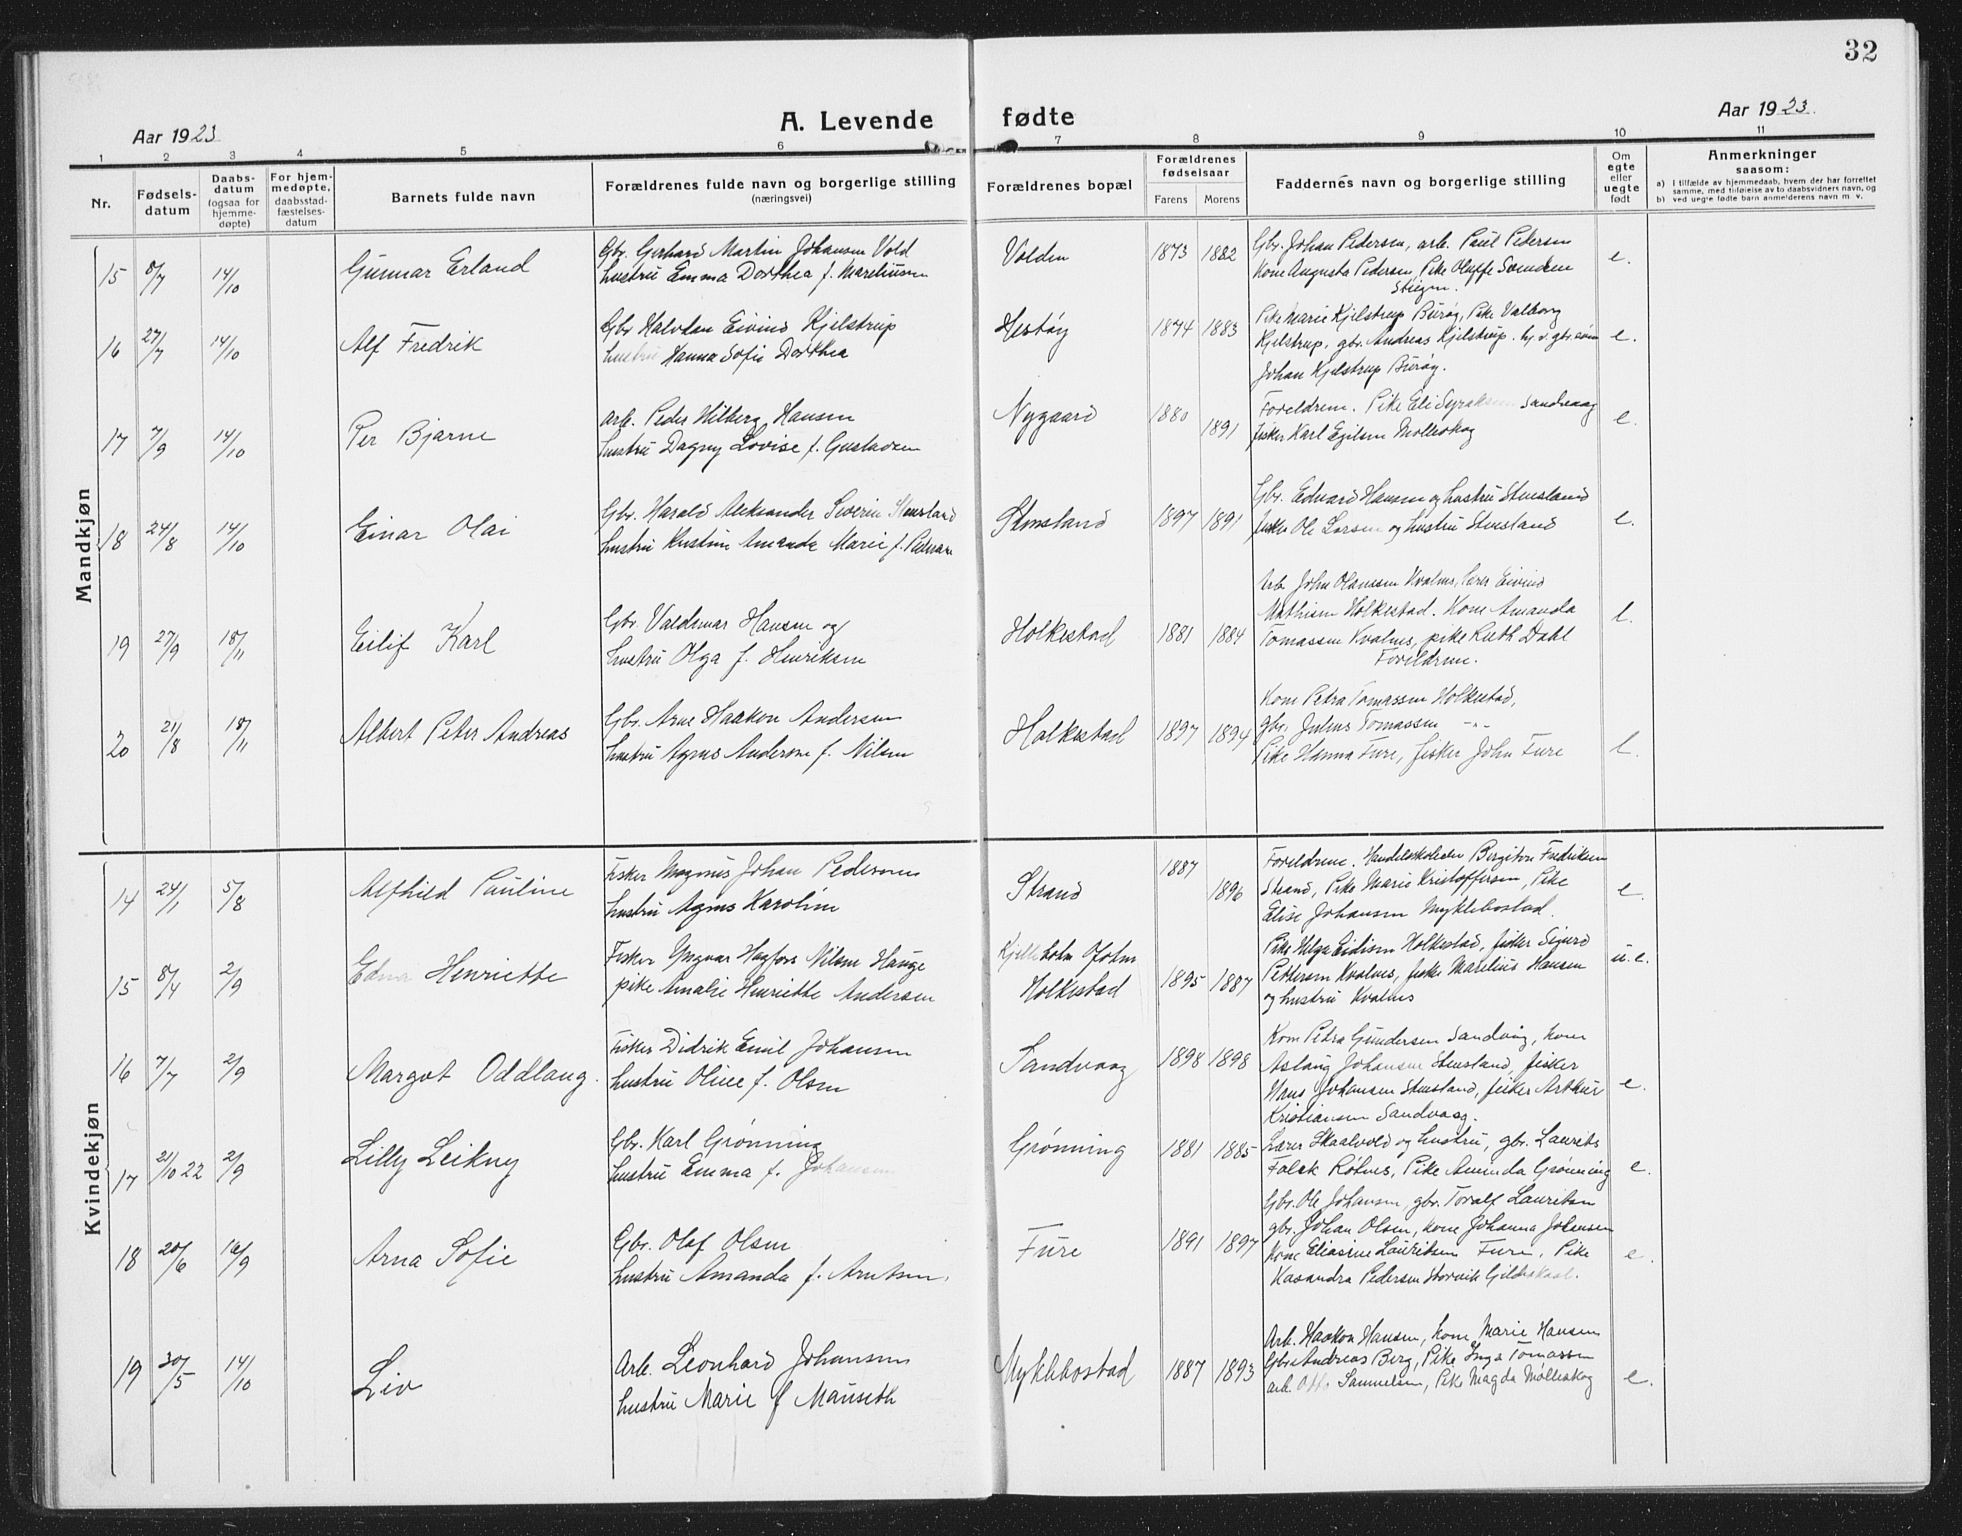 32
A. Levende fødte
Aar 1923
Aar 1923.
1 2 3 4 5 6 7 8 9 10 11
Nr.
Fødsels-
datum
Daabs-
datum
(ogsaa for
hjemme-
døpte)
For hjem-
medøpte,
daabsstad-
fæstelses-
datum
Barnets fulde navn
Forældrenes fulde navn og borgerlige stilling
(næringsvei)
Forældrenes bopæl
Forældrenes
fødselsaar
Farens Morens
Faddernes navn og borgerlige stilling
Om
egte
eller
uegte
født
Anmerkninger
saasom:
a) I tilfælde av hjemmedaab, hvem der har forrettet
samme, med tilføielse av to daabsvidners navn, og
b) ved uegte fødte barn anmelderens navn m. v.
Mandkjøn
15 8/7 14/10 Gunnar Erland
Gbr. Gerhard Martin Johansen Vold
hustru Emma Dorthea f. Mareliussen
Volden 1873 1882
Gbr. Johan Pedersen, arb. Paul Pedersen
Kone Augusta Pedersen, Pike Oluffe
Steigen.
e.
16 27/7 14/10 Alf Fredrik
Gbr. Halvdan Eivind Kjelstrup
hustru Hanna Sofie Dorthea
Hestøy 1874 1883
Pike Marie Kjelstrup Burøy, Pike Valborg
Kjelstrup, gbr. Andreas Kjelstrup.
Johan Kjelstrup Burøy.
e.
17 7/9 14/10 Per Bjarne
Arb. Peder Hilberg Hansen
hustru Dagny Lovise f. Gustavsen
Nygaard 1880 1891
Foreldrene. Pike Eli Syraksen Sandvaag
fisker Karl Egilsen Molleskog
e.
18 24/8 14/10 Einar Olai
Gbr. Harald Aleksander Severin Stensland
hustru Kristine Amanda Marie f. Pedersen
Stensland 1897 1891
Gbr. Edvard Hansen og hustru Stensland
fisker Ole Larsen og hustru Stensland
e.
19 27/9 18/11 Eilif Karl
Gbr. Valdemar Hansen og
hustru Olga f. Henriksen
Holkestad 1881 1884
Arb. John Olaussen Kvalnes, Lærer Eivind
Mathisen Holkestad. Kone Amanda
Tomassen Kvalnes, pike Ruth Dahl
Foreldrene.
e.
20 21/8 18/11 Albert Peter Andreas
Gbr. Arne Haakon Andersen
hustru Agnes Andersen f. Nilsen
Holkestad 1897 1894
Kone Petra Tomassen Holkestad,
gbr. Julius Tomassen -"-
Pike Hanna Fure, fisker John Fure
e.
Kvindekjøn
14 24/1 5/8 Alfhild Pauline
Fisker Magnus Johan Pedersen
hustru Agnes Karoline
Strand 1887 1896
Foreldrene. Handelsbetjent Bergiton Fredriksen
Strand, Pike Marie Kristoffersen, Pike
Elise Johansen Myklebostad.
e.
15 8/4 2/9 Edna Henriette
Fisker Yngvar Hagfors Nilsen Hauge
pike Amalie Henriette Andersen
Kjelleholm Ofoten
Holkestad 1895 1887
Pike Helga Eidissen Holkestad, fisker Sigurd
Pettersen Kvalnes, fisker Marelius Hansen
og hustru Kvalnes
u.e.
16 7/7 2/9 Margot Oddlaug.
Fisker Didrik Emil Johansen
hustru Oline f. Olsen
Sandvaag 1898 1898
Kone Petra Gundersen Sandvåg, kone
Aslaug Johansen Stensland, fisker
Hans Johansen Stensland, fisker Arthur
Kristiansen Sandvaag.
e.
17 21/10 22 2/9 Lilly Leikny
Gbr. Karl Grønning
hustru Emma f. Johansen
Grønning 1881 1885
Lærer Skaalvold og hustru, gbr. Laurits
Falsk Røtnes, Pike Aminda Grønning
e.
18 20/6 16/9 Arna Sofie
Gbr. Olaf Olsen
hustru Amanda f. Arntsen.
Fure 1891 1897
Gbr. Ole Johansen, gbr. Toralf Lauritsen
gbr. Johan Olsen, kone Johanna Johansen
Kone Eliasine Lauritsen Fure, Pike
Kasandra Pedersen Storvik Gildeskaal.
e.
19 30/5 14/10 Liv
Arb. Leonhard Johansen
hustru Marie f Mauseth
Myklebostad 1887 1893
Arb. Haakon Hansen, kone Marie Hansen
Gbr. Andreas Berg, Pike Inga Tomassen
arb. Otto Samuelsen, Pike Magda Molleskog
e.